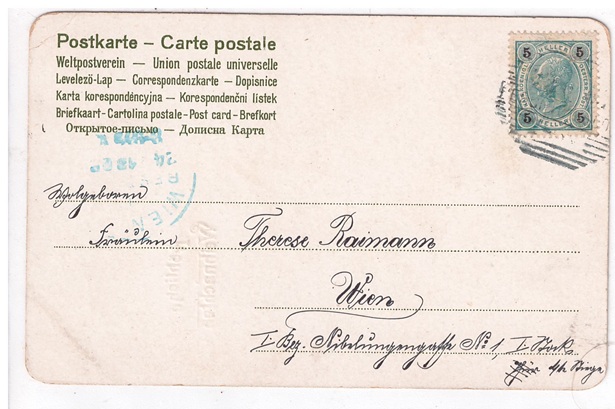 Postkarte – Carte postale
Weltpostverein — Union postale universelle
Levelező-Lap — Correspondenzkarte — Dopisnice
Karta korespondéncyjna — Korespondenční listek
Briefkaart - Cartolina postale - Post card - Brefkort
Открытое-письмо — Дописна Карта
5 HELLER 5
5 HELLER 5
WIEN
Wolgeboren
Fräulein Therese Raimann
Wien
I. Bez. Nibelungengasse No 1, I. Stock
4te Stiege